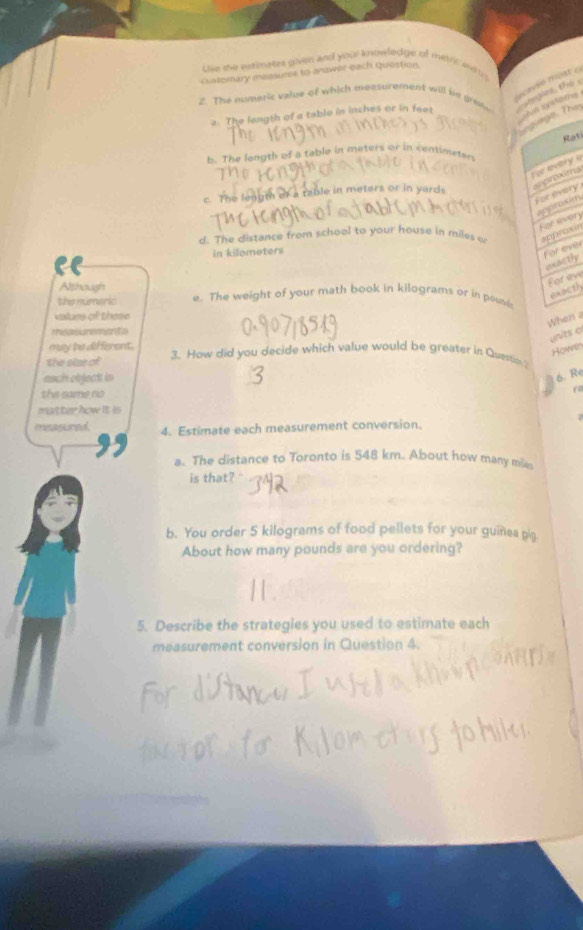 Use the estimates given and your knowledge of metric and
customary measures to answer each question.
2. The numeric value of which measurement will be greater
a. The length of a table in inches or in feet
The length in inches is
b. The length of a table in meters or in centimeters
The length of a table in
c. The length of a table in meters or in yards
The length of a table in meters is
d. The distance from school to your house in miles or
in kilometers
e. The weight of your math book in kilograms or in pounds
0.90718519
3. How did you decide which value would be greater in Question 2
3
4. Estimate each measurement conversion.
a. The distance to Toronto is 548 km. About how many miles
is that?
342
b. You order 5 kilograms of food pellets for your guinea pig.
About how many pounds are you ordering?
11.
5. Describe the strategies you used to estimate each
measurement conversion in Question 4.
For distance I used a known
factor for Kilometers to miles.
Although
the numeric
values of these
measurements
may be different,
the size of
each object is
the same no
matter how it is
measured.
For every
For every
For every
exactly
exactly
When a
units
6. Re